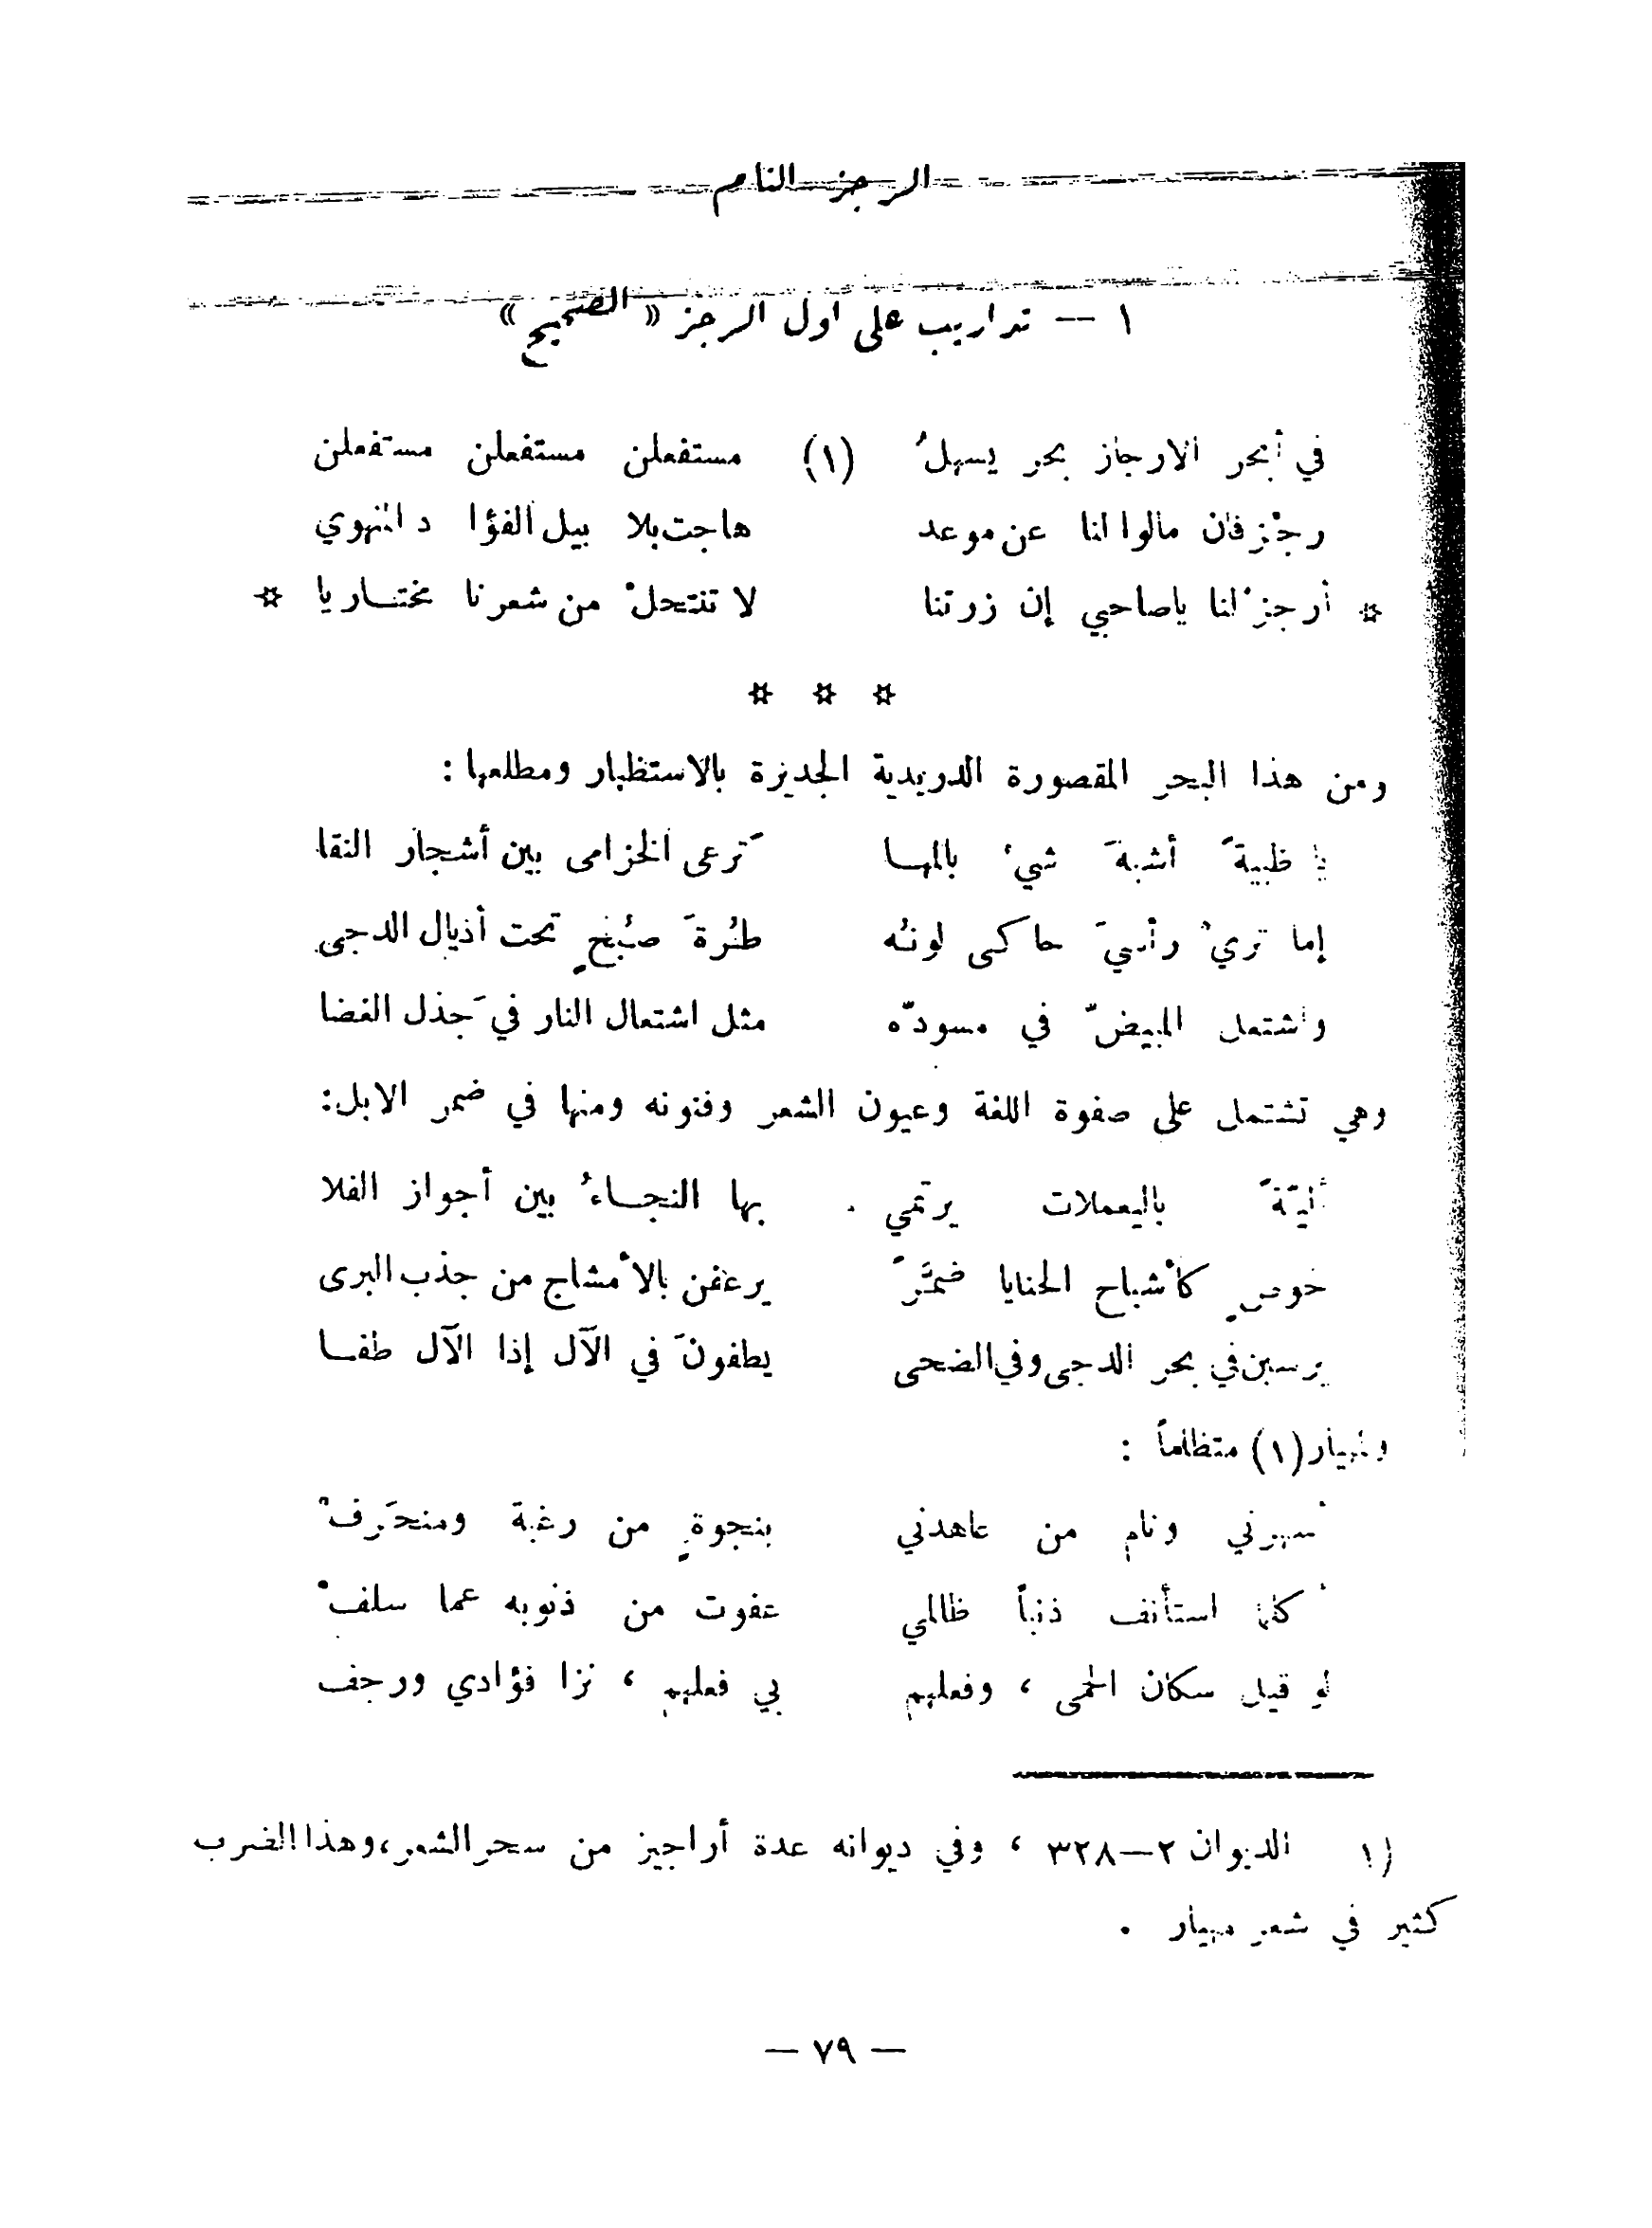 الرجز التام
١ -- تداريب على اول الرجز « الصحيح »
في أبحر الارجاز بحر يسهلُ (١) مستفعلن مستفعلن مستفعلن
رجّز فان مالوا لنا عن موعد هاجت بلا بيل الفؤا د المنهوي
* أرجزْ لنا ياصاحبي إن زرتنا لا تنتحلْ من شعرنا مختــاريا *
* * *
ومن هذا البحر المقصورة الدريدية الجديرة بالاستظهار ومطلعها :
يا ظبيةً أشبهَ شيءٍ بالمهــا تَرعى الخزامى بين أشجار النقا
إما تريْ رأسيَ حاكى لونُه طُرةَ صُبْحٍ تحت أذيال الدجى
واشتعل المبيضّ في مسودّه مثل اشتعال النار في جَذل الغضا
وهي تشتمل على صفوة اللغة وعيون الشعر وفنونه ومنها في ضمر الابل :
أليّةً باليعملات يرتمي بها النجــاءُ بين أجواز الفلا
خوصٍ كأشباح الحنايا ضمَّرٍ يرعفن بالأمشاج من جذب البرى
يرسبن في بحر الدجى وفي الضحى يطفونَ في الآل إذا الآل طفــا
ولمهيار (١) متظلماً :
أسهرني ونام من عاهدني بنجوةٍ من رغبة ومنحَرفْ
أكلما استأنف ذنباً ظالمي عفوت من ذنوبه عما سلفْ
لو قيل سكان الحمى ، وفعلهم بي فعلهم ، نزا فؤادي ورجف
(١ الديوان ٢—٣٢٨ ، وفي ديوانه عدة أراجيز من سحر الشعر،وهذا الضرب
كثير في شعر مهيار .
— ٧٩ —